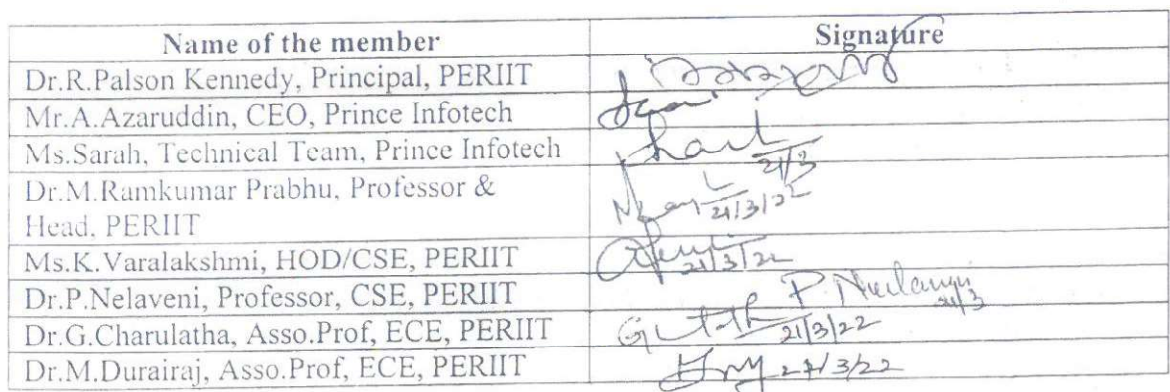 Name of the member Signature
Dr.R.Palson Kennedy, Principal, PERIIT
Mr.A.Azaruddin, CEO, Prince Infotech
Ms.Sarah, Technical Team, Prince Infotech
21/3
Dr.M.Ramkumar Prabhu, Professor &
Head, PERIIT
21/3/22
Ms.K.Varalakshmi, HOD/CSE, PERIIT
21/3/22
Dr.P.Nelaveni, Professor, CSE, PERIIT
21/3
Dr.G.Charulatha, Asso.Prof, ECE, PERIIT
21/3/22
Dr.M.Durairaj, Asso.Prof, ECE, PERIIT